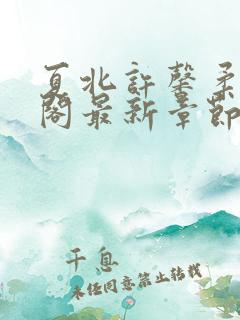 夏北許馨柔
閣最新章節
千息
未经同意禁止转载